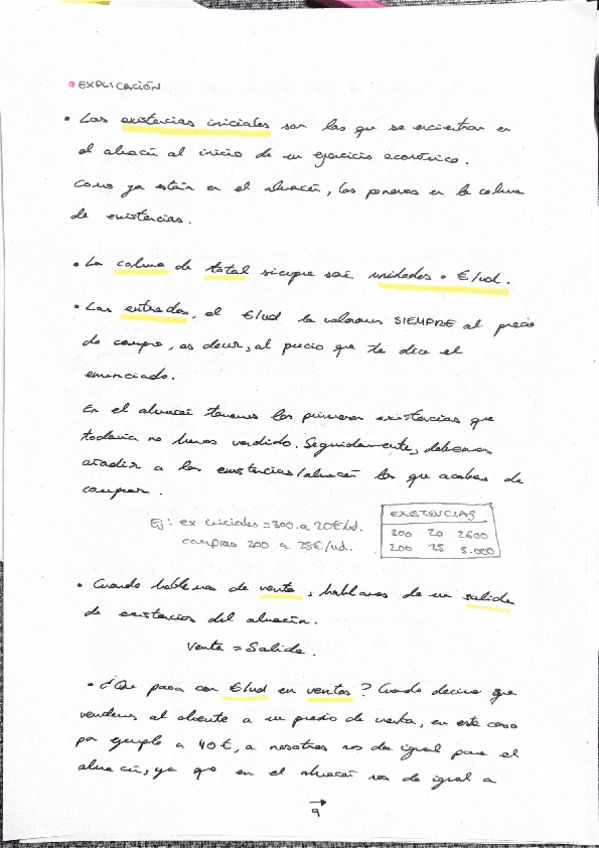 EXPLICACIÓN
• Las existencias iniciales son las que se encuentran en
el almacén al inicio de un ejercicio económico.
Como ya están en el almacén, las ponemos en la columna
de existencias.
• La columna de total siempre será unidades · €/ud.
• Las entradas, el €/ud lo valoramos SIEMPRE al precio
de compra, es decir, al precio que te dice el
enunciado.
En el almacén tenemos las primeras existencias que
todavía no hemos vendido. Seguidamente, debemos
añadir a las existencias/almacén las que acabas de
comprar.
Ej: ex iniciales = 300 a 20€/ud.
compras 200 a 25€/ud.
EXISTENCIAS
20
200 25 5.000
• Cuando hablemos de venta, hablamos de una salida
de existencias del almacén.
Venta = Salida.
• ¿Qué pasa con €/ud en ventas? Cuando decimos que
vendemos al cliente a un precio de venta, en este caso
por ejemplo a 40€, a nosotros nos da igual para el
almacén, ya que en el almacén nos da igual a
9